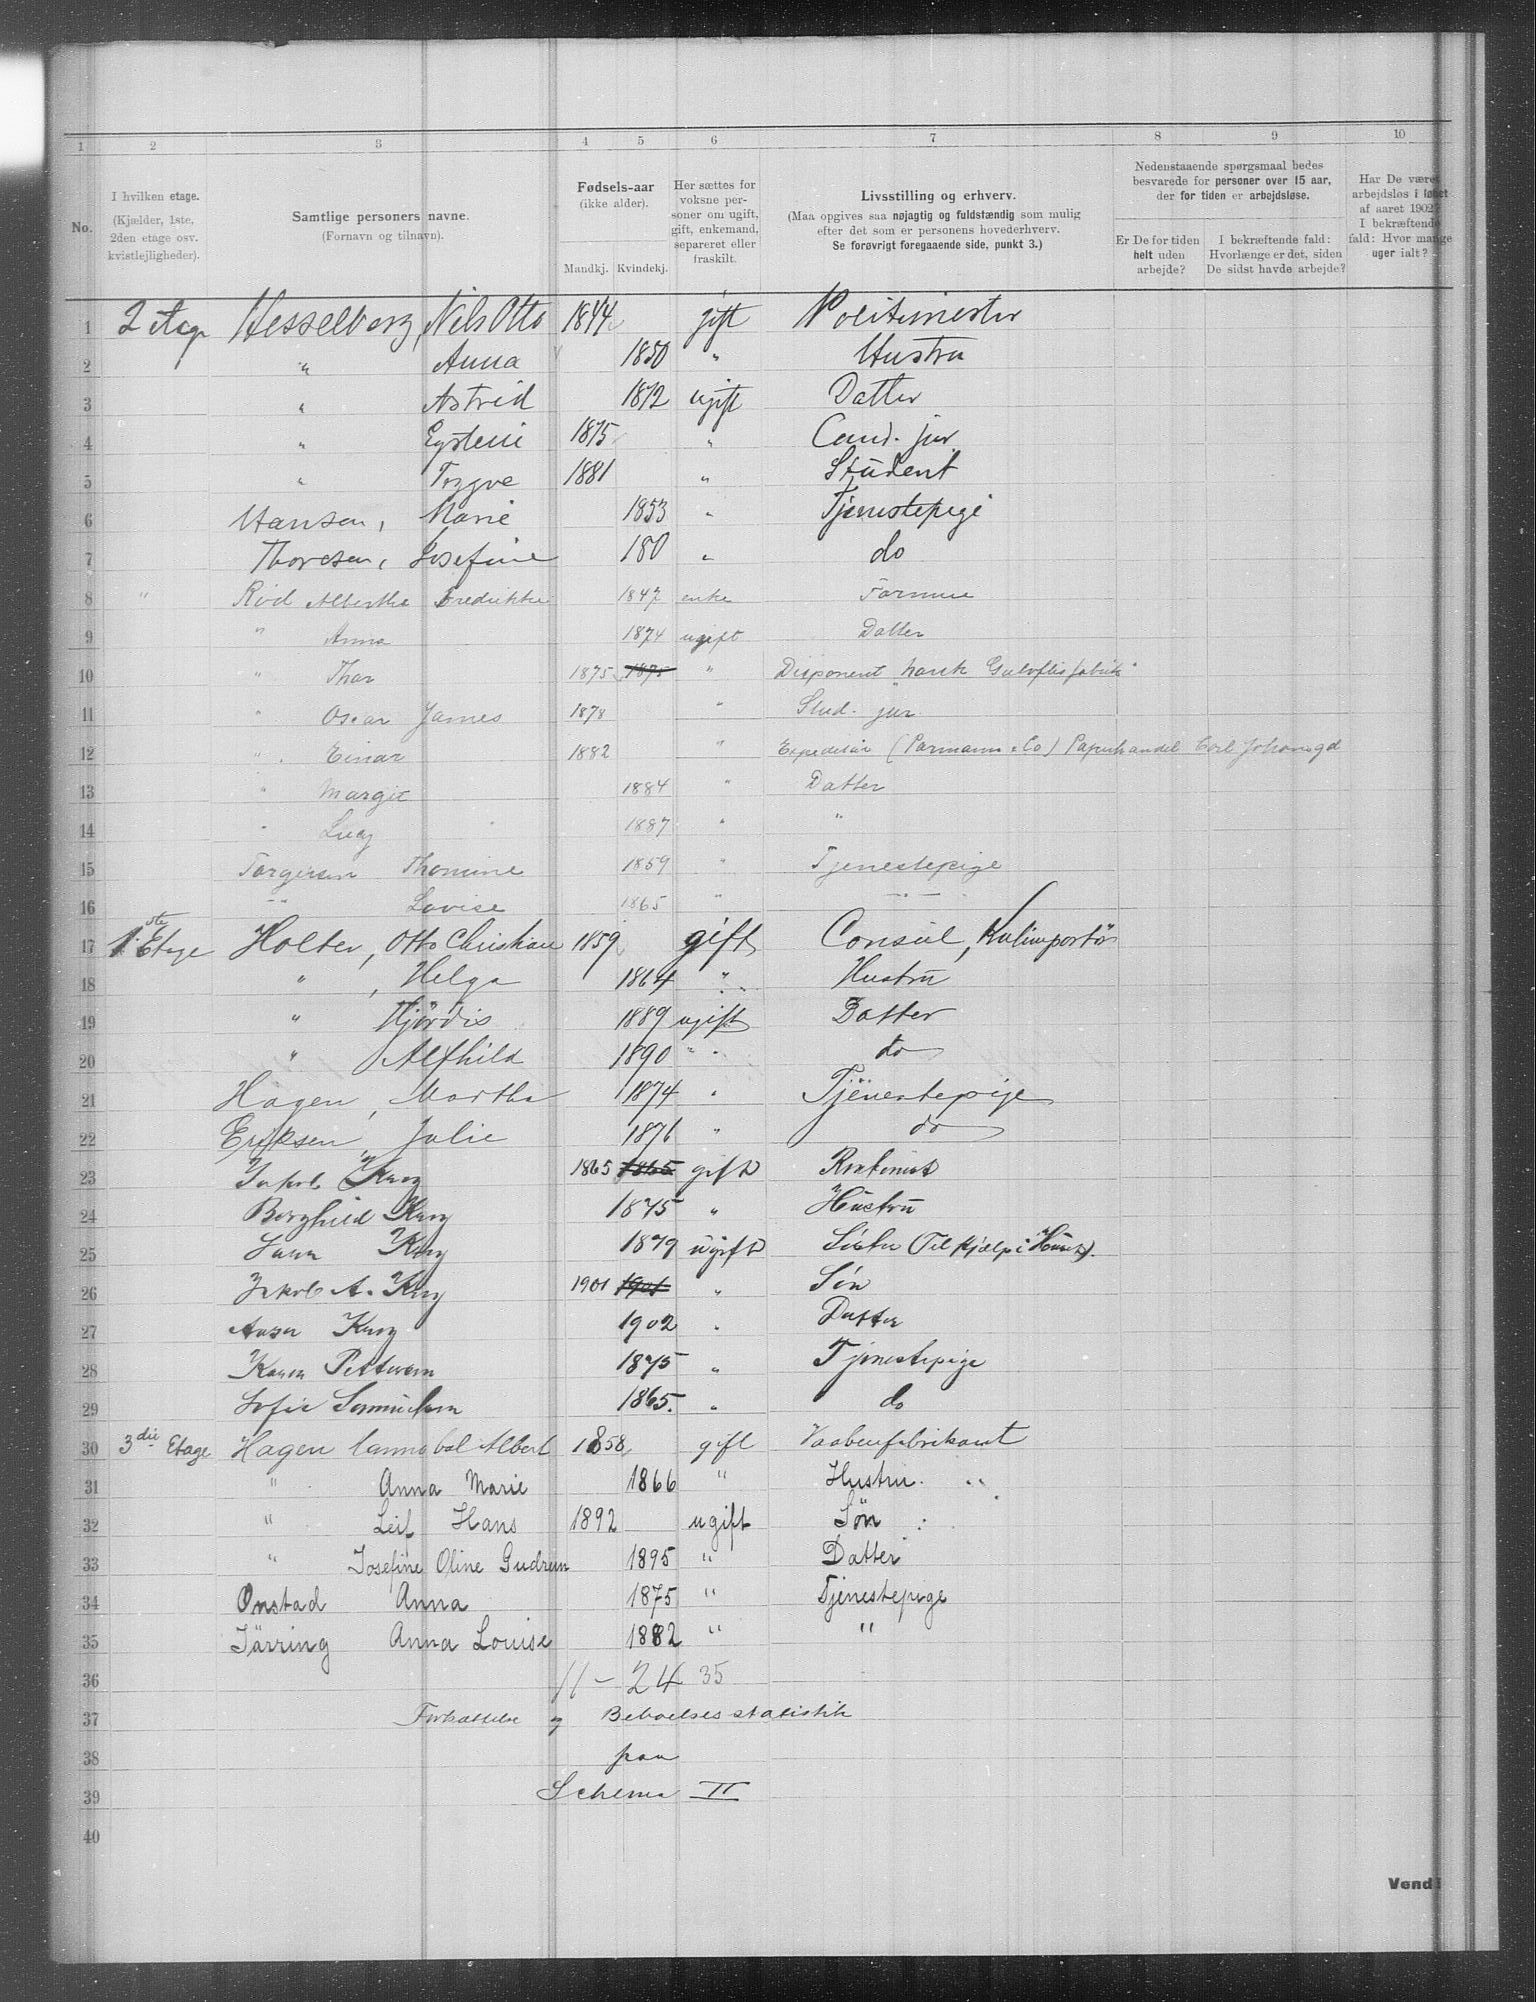 1 2 3 4 5 6 7 8 9 10
No.
I hvilken etage.
(Kjælder, 1ste,
2den etage osv.
kvistlejligheder).
Samtlige personers navne.
(Fornavn og tilnavn).
Fødsels-aar
(ikke alder).
Mandkj. Kvindekj.
Her sættes for
voksne per-
soner om ugift,
gift, enkemand,
separeret eller
fraskilt.
Livsstilling og erhverv.
(Maa opgives saa nøjagtig og fuldstændig som mulig
efter det som er personens hovederhverv.
Se forøvrigt foregaaende side, punkt 3.)
Nedenstaaende spørgsmaal bedes
besvarede for personer over 15 aar,
der for tiden er arbejdsløse.
Er De for tiden
helt uden
arbejde?
I bekræftende fald:
Hvorlænge er det, siden
De sidst havde arbejde?
Har De været
arbejdsløs i løbet
af aaret 1902?
I bekræftende
fald: Hvor mange
uger ialt?
1 2 etage Hesselberg, Nils Otto 1844 gift Politimester
2 " Anna 1850 " Hustru
3 " Astrid 1872 ugift Datter
4 " Eystein 1875 " Cand. jur.
5 " Trygve 1881 " Student
6 Hansen, Marie 1853 " Tjenestepige
7 Thoresen, Josefine 180 " do
8 " Röd Alberthe Fredrikke 1847 enke Formue
9 " Anna 1874 ugift Datter
10 " Thor 1875 1875 " Disponent norsk Gulvflisfabrik
11 " Oscar James 1878 " Stud. jur
12 " Einar 1882 " Expeditör (Parmann & Co) Papirhandel Carl Johansgd
13 " Margit 1884 " Datter
14 " Lucy 1887 " "
15 Torgersen Thomine 1859 " Tjenestepige
16 -"- Lovise 1865 " -"-
17 1ste Etage Holter, Otto Christian 1859 gift Consul, Kulimportör
18 " , Helga 1864 " Hustru
19 " Hjördis 1889 ugift Datter
20 " Alfhild 1890 " do
21 Hagen, Martha 1874 " Tjenestepige
22 Eriksen Julie 1876 " do
23 Jakob Krog 1865 1865 gift
24 Borghild Krog 1875 " Hustru
25 Krog 1879 ugift Söster (Til Hjælp i Huset).
26 Jakob A. Krog 1901 1901 " Sön
27 Krog 1902 " Datter
28 Karen Pettersen 1875 " Tjenestepige
29 Sofie Samuelsen 1865. " do
30 3die Etage Hagen Cannobal Albert 1858 gift Vaabenfabrikant
31 " Anna Marie 1866 " Hustru
32 " Leif Hans 1892 ugift Søn
33 " Josefine Oline Gudrun 1895 " Datter
34 Onstad Anna 1875 " Tjenestepige
35 Järring Anna Louise 1882 " "
36 11 - 24 35
37 Fortsættelse og Beboelsesstatistik
38 paa
39 Schema II
40
Vend!